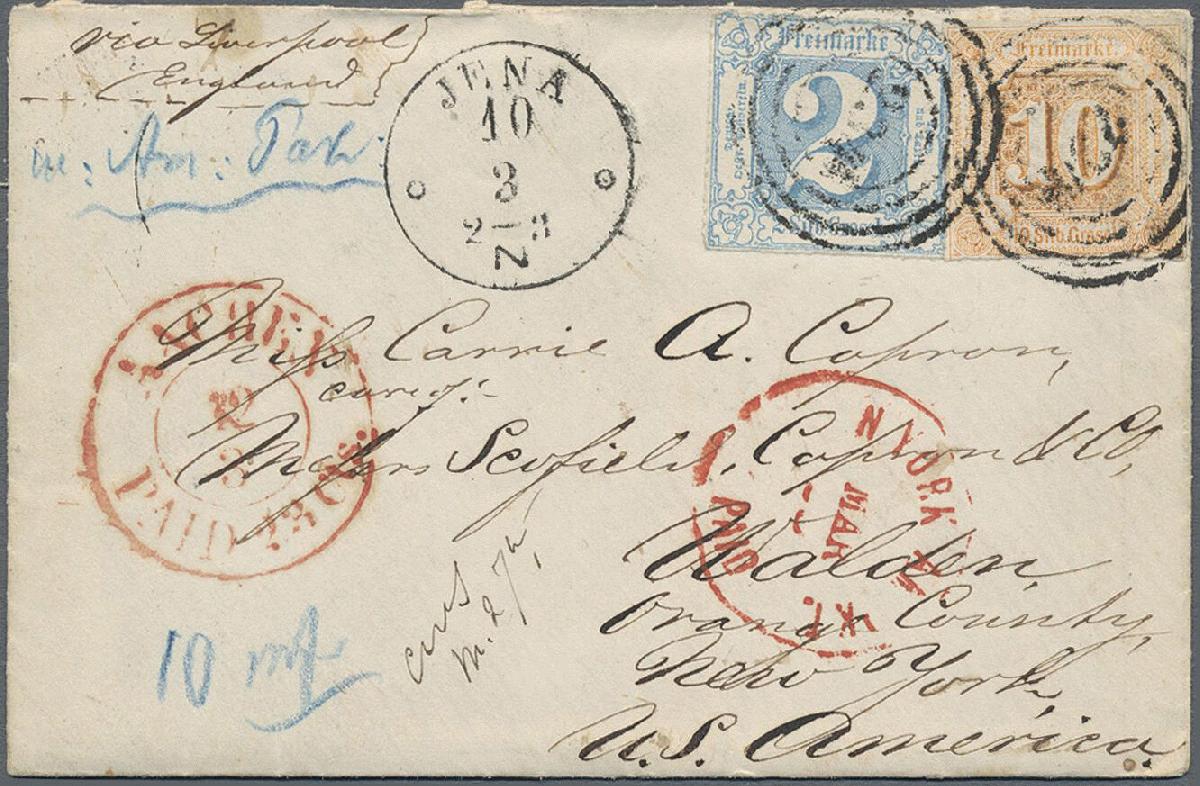 via Liverpool
England
Am: Pak
JENA
10
3
2–3
N
Freimarke
2
Silb. Grosch.
Freimarke
10
10 Silb. Grosch.
AACHEN
3
PAID
Miss Carrie A. Capron,
care of:
Messrs Scofield, Capron & Co,
Walden,
Orange County,
New York,
U.S. America.
N. YORK
MAR
PAID
10